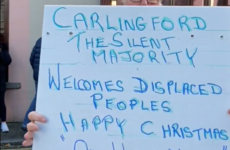 CARLINGFORD
THE SILENT
MAJORITY
WELCOMES DISPLACED
PEOPLES
HAPPY CHRISTMAS